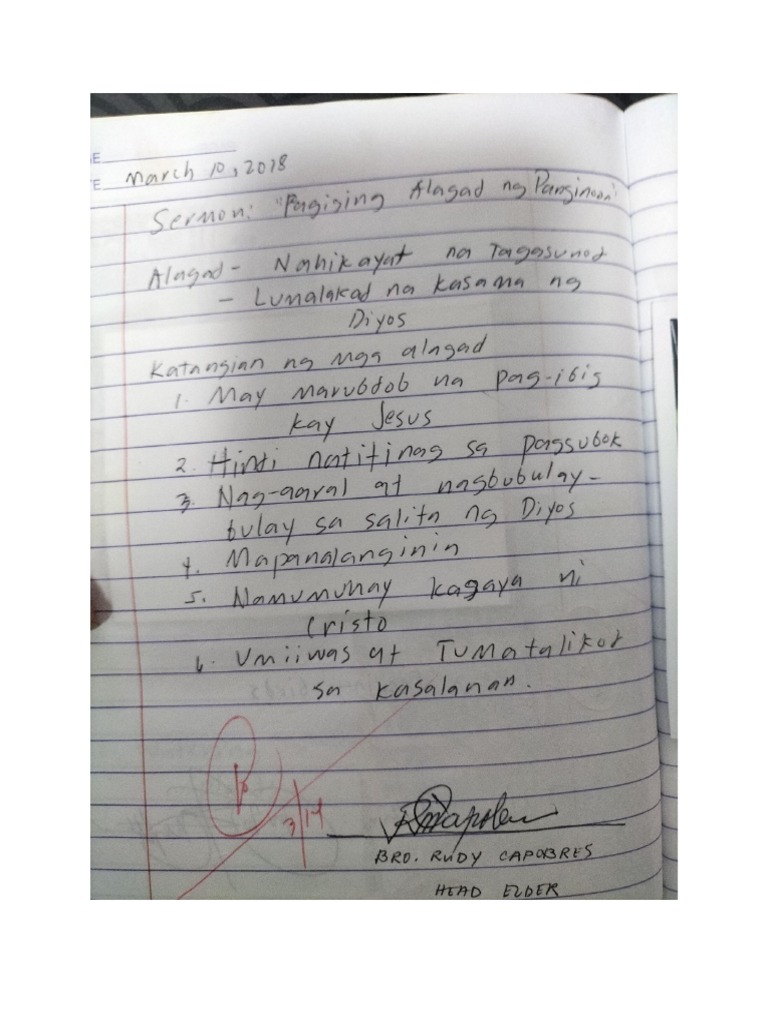 March 10, 2018
Sermon: "Pagiging Alagad ng Panginoon"
Alagad - Nahikayat na Tagasunod
- Lumalakad na kasama ng
Diyos
Katangian ng mga alagad
1. May marubdob na pag-ibig
kay Jesus
2. Hindi natitinag sa pagsubok
3. Nag-aaral at nagbubulay-
bulay sa salita ng Diyos
4. Mapanalanginin
5. Namumuhay kagaya ni
Cristo
6. Umiiwas at Tumatalikod
sa kasalanan.
3/14
BRO. RUDY CAPOBRES
HEAD ELDER